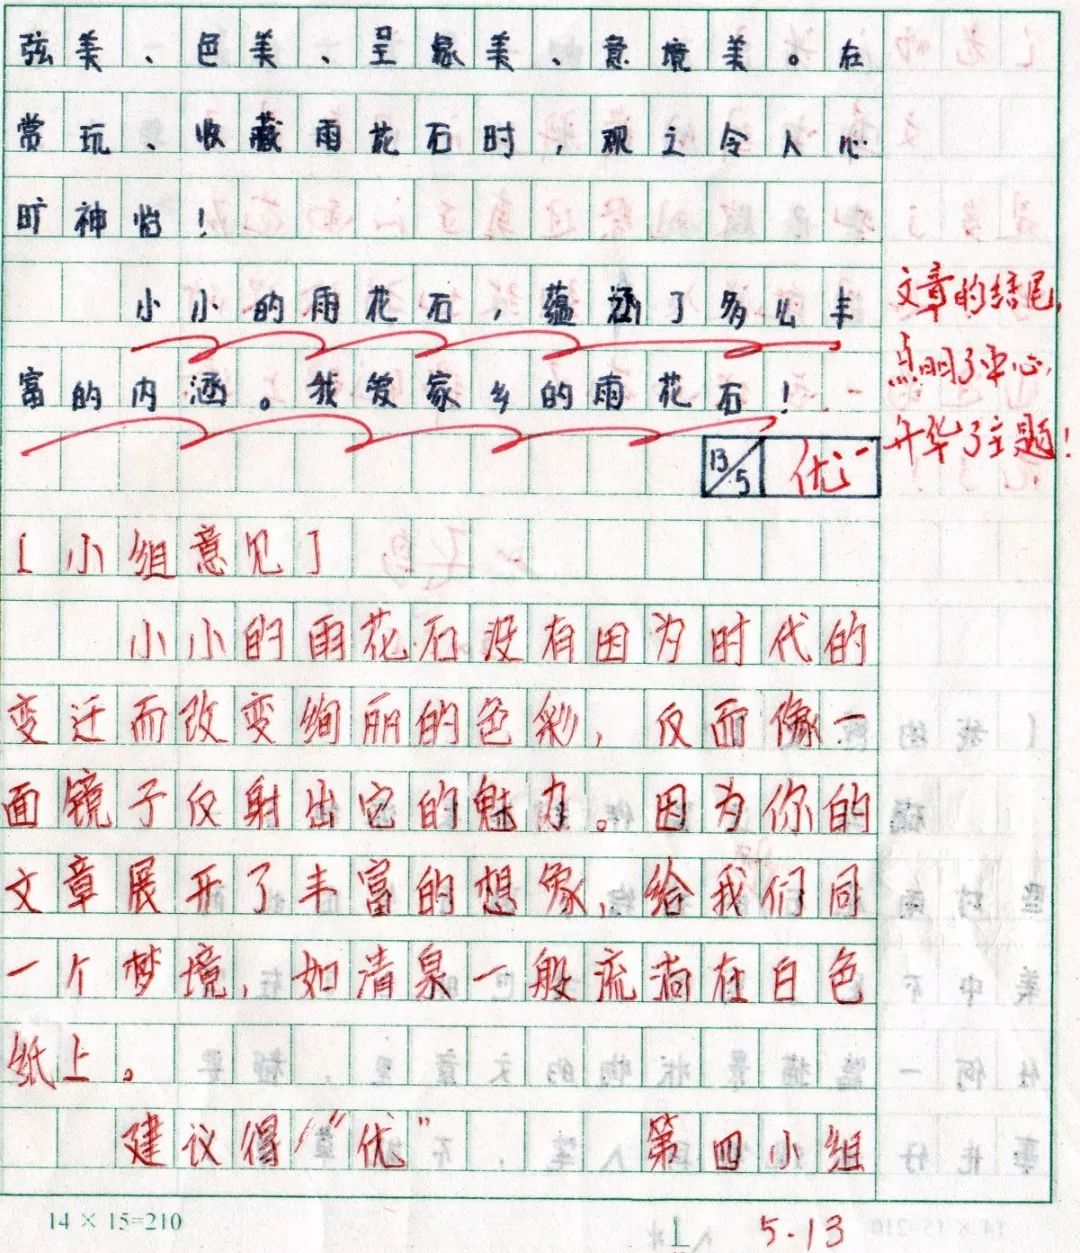 弦美、色美、呈象美、意境美。在
赏玩、收藏雨花石时，观之令人心
旷神怡！
小小的雨花石，蕴涵了多么丰
富的内涵。我爱家乡的雨花石！
文章的结尾，
点明了中心，
升华了主题！
13/5 优
[小组意见]
小小的雨花石没有因为时代的
变迁而改变绚丽的色彩，反而像一
面镜子反射出它的魅力。因为你的
文章展开了丰富的想象，给我们同
一个梦境，如清泉一般流淌在白色
纸上。
建议得“优” 第四小组
14 × 15=210
5.13